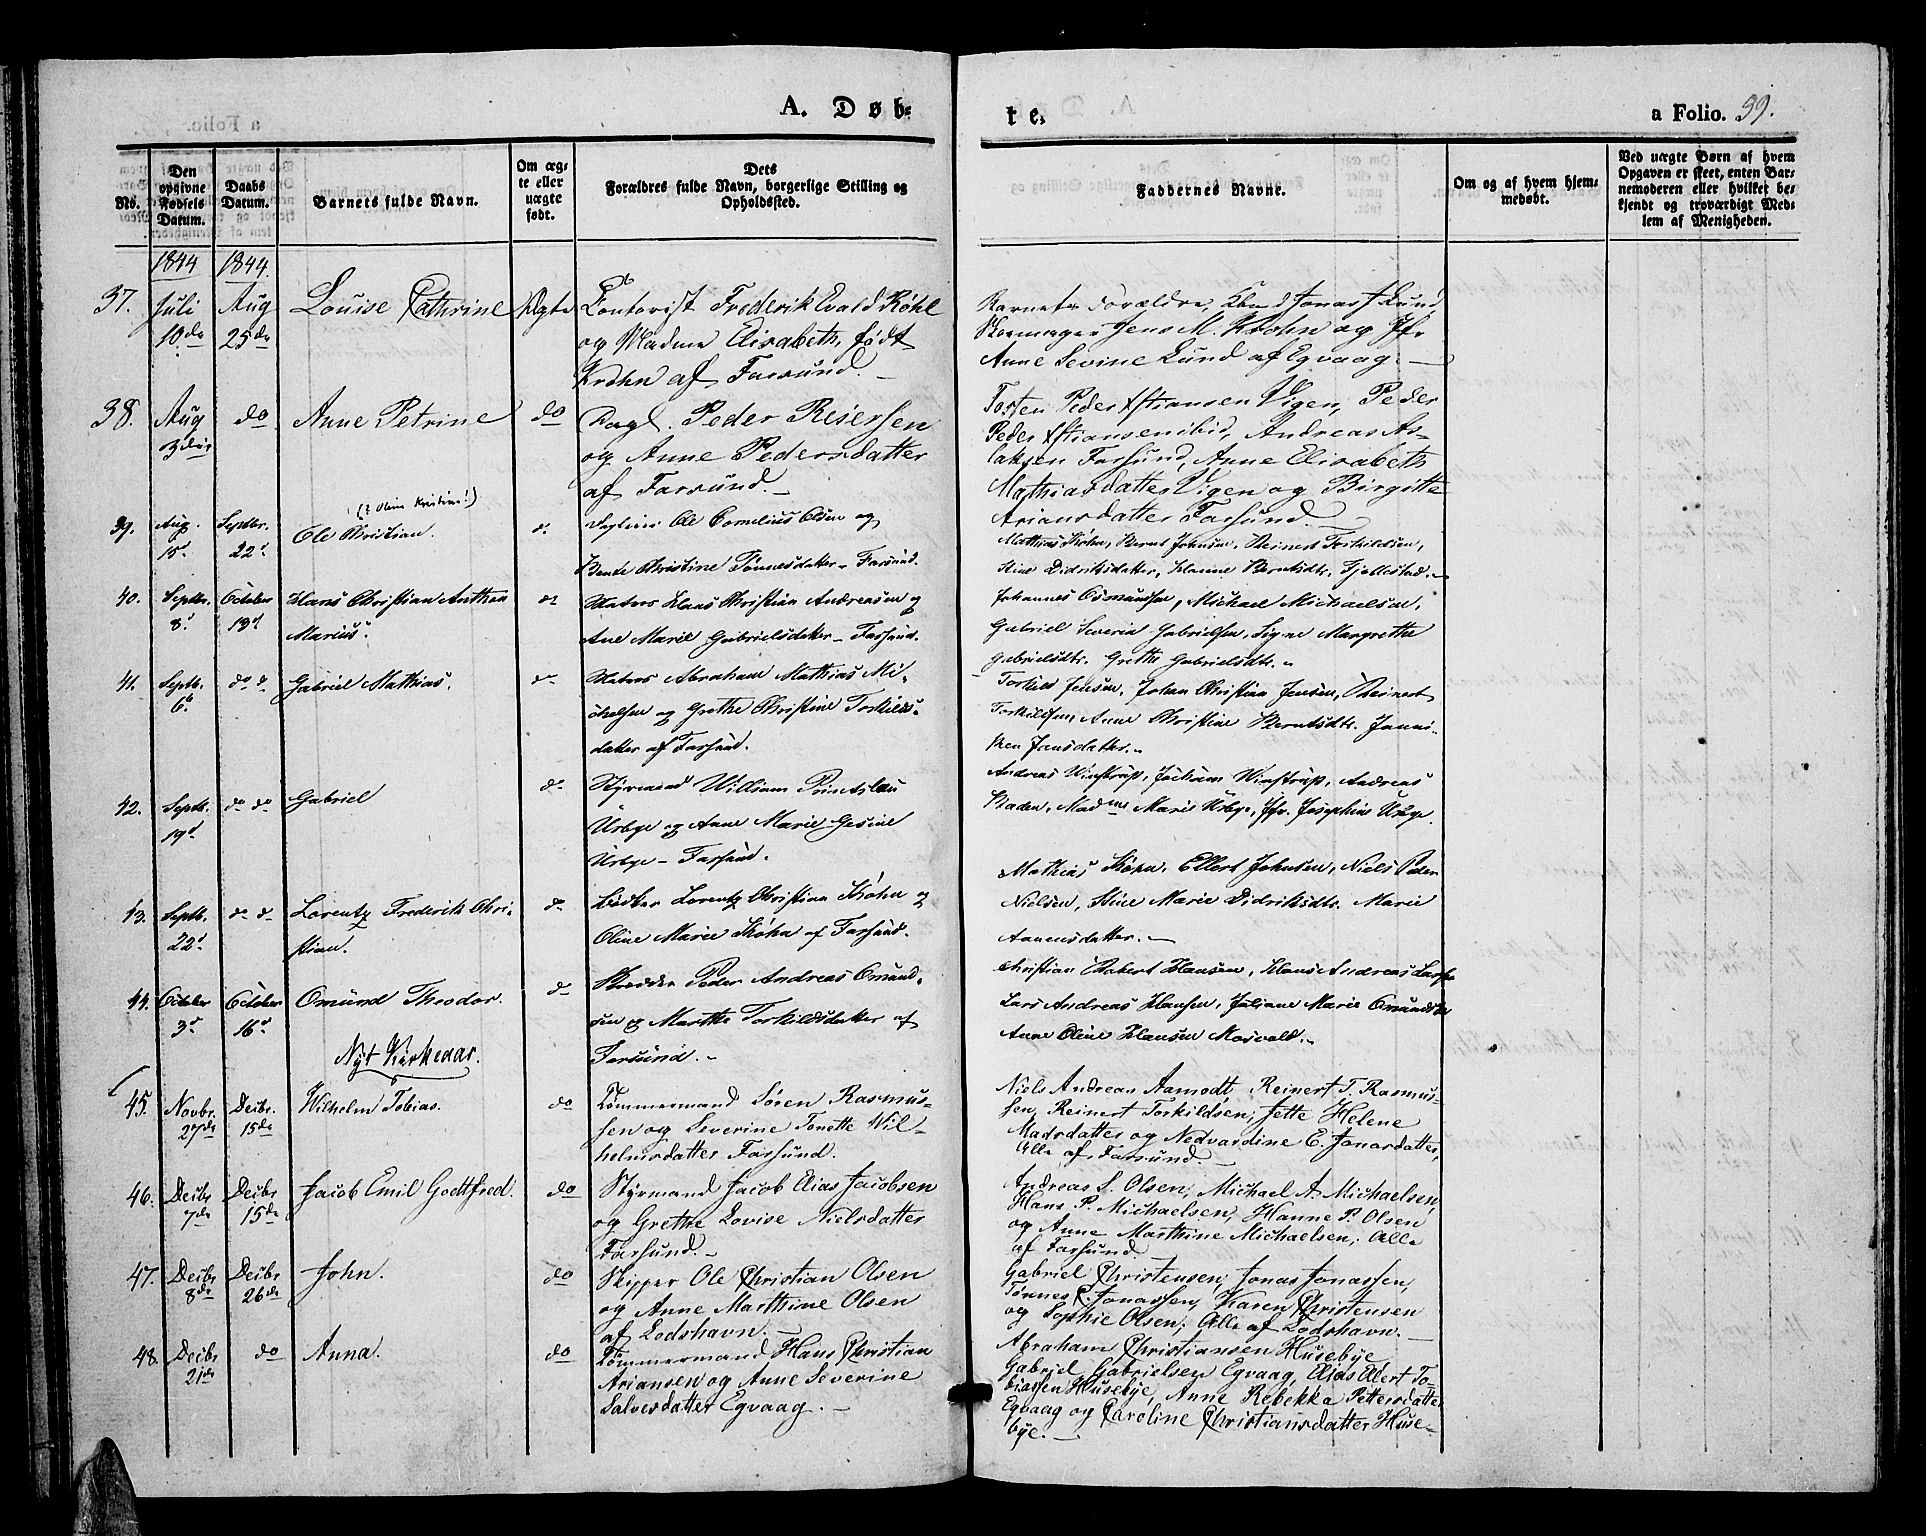 A. Døb-
te.
a Folio. 39.
No.
Den opgivne Fødsels Datum.
Daabs Datum.
Barnets fulde Navn.
Om ægte eller uægte født.
Dets Forældres fulde Navn, borgerlige Stilling og Opholdssted.
Faddernes Navne.
Om og af hvem hjemmedøbt.
Ved uægte Børn af hvem Opgaven er skeet, enten Barnemoderen eller hvilket bekjendt og troværdigt Medlem af Menigheden.
1844 1844.
37. Juli 10de Aug 25de Louise Cathrine Ægte Contorist Frederik Evald Røhl
og Madme Elisabeth, født
Krøhn af Farsund.
Barnets Forældre, Jonas Lund
Jens M. Krohn og Jfr
Anne Sevine Lund af Egvaag.
38. Aug 3die do Anne Petrine do Dagl. Peder Reiersen
og Anne Pedersdatter
af Farsund.
Tosten Peder Xstiansen Vigen, Peder
Peder Xstiansen ibid, Andreas As-
laksen Farsund, Anne Elisabeth
Mathiasdatter Vigen og Birgitte
Ariansdatter Farsund.
(? Oline Kristine!)
39. Aug. 15. Septbr. 22. Ole Christian. do Ole Cornelius Olsen og
Bente Christine Tønnesdatter - Farsund.
Mathias Køhn, Bernt Johnsen, Reinert Torkildsen,
Stine Didriksdatter, Hanne Berntsdtr. Fjellestad.
40. Septbr. 8. October 13. Hans Christian Anthon
Marius.
do Matros Hans Christian Andreasen og
Ane Marie Gabrielsdatter - Farsund.
Johannes Osmundsen, Michael Michaelsen,
Gabriel Severin Gabrielsen, Signe Margrethe
Gabrielsdtr. Grethe Gabrielsdtr.
41. Septb. 6. do do Gabriel Mathias. do Matros Abraham Mathias Mi-
chelsen og Grethe Christine Torkilds-
datter af Farsund.
Torkild Jensen, Johan Christian Jensen, Reinert
Torkildsen, Anne Christine Berntsdtr. Janni-
ken Jansdatter.
42. Septb. 19. do do Gabriel do Styrmand William
Urbye og Anne Marie Gesine
Urbye - Farsund.
Andreas Winstrup, Jochum Winstrup, Andreas
Baden, Madme Marie Urbye, Jfr. Josephine Urbye.
13. Septb. 22. do do Lorentz Frederik Chri-
stian.
do Bødker Lorentz Christian Køhn og
Oline Marie Køhn af Farsund.
Mathias Køhn, Ellert Johnsen, Niels Peder
Nielsen, Stine Marie Didriksdtr. Marie
44. October 3. October 16. Omund Theodor. do Skredder Peder Andreas Omund-
sen og Marthe Torkildsdatter af
Farsund.
Christian Robert Hansen, Hans Andreas
Lars Andreas Hansen, Juliane Marie
Anne Oline Hansen Mosvold.
Nyt Kirkeaar.
45. Novbr. 27de Decbr. 15de Wilhelm Tobias. do Tømmermand Søren Rasmus-
sen og Severine Tonette Wil-
helmsdatter Farsund.
Niels Andreas Aamodt, Reinert T. Rasmus-
sen, Reinert Torkildsen, Jette Helene
Madsdatter og Nedvardine E. Jonasdatter,
Alle af Farsund.
46. Decbr 7de Decbr 15de Jacob Emil Godtfred. do Styrmand Jacob Elias Jacobsen
og Grethe Lovise Nielsdatter
Farsund.
Andreas S. Olsen, Michael A. Michaelsen,
Hans P. Michaelsen, Hanne P. Olsen
og Anne Marthine Michaelsen, Alle
af Farsund.
47. Decbr 8de Decbr 26de John. do Skipper Ole Christian Olsen
og Anne Marthine Olsen
af Lodshavn.
Gabriel Christensen, Jonas Jonassen,
Tønnes C. Jonassen, Karen Christensen
og Sophie Olsen, Alle af Lodshavn.
48. Decbr 21de do Anna. do Tømmermand Hans Christian
Ariansen og Anne Severine
Salvesdatter Egvaag.
Abraham Christiansen Husebye
Gabriel Gabrielsen Egvaag, Elias Alert To-
biassen Husebye, Anne Rebekka Pettersdatter
Egvaag og Caroline Christiansdatter Huse-
bye.